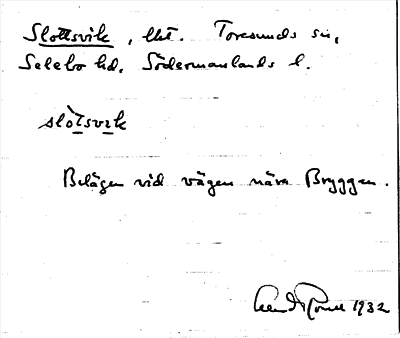 Slottsvik, lht. Toresunds sn,
Selebo hd, Södermanlands l.
slòtsvik
Belägen vid vägen nära Bryggen.
1932